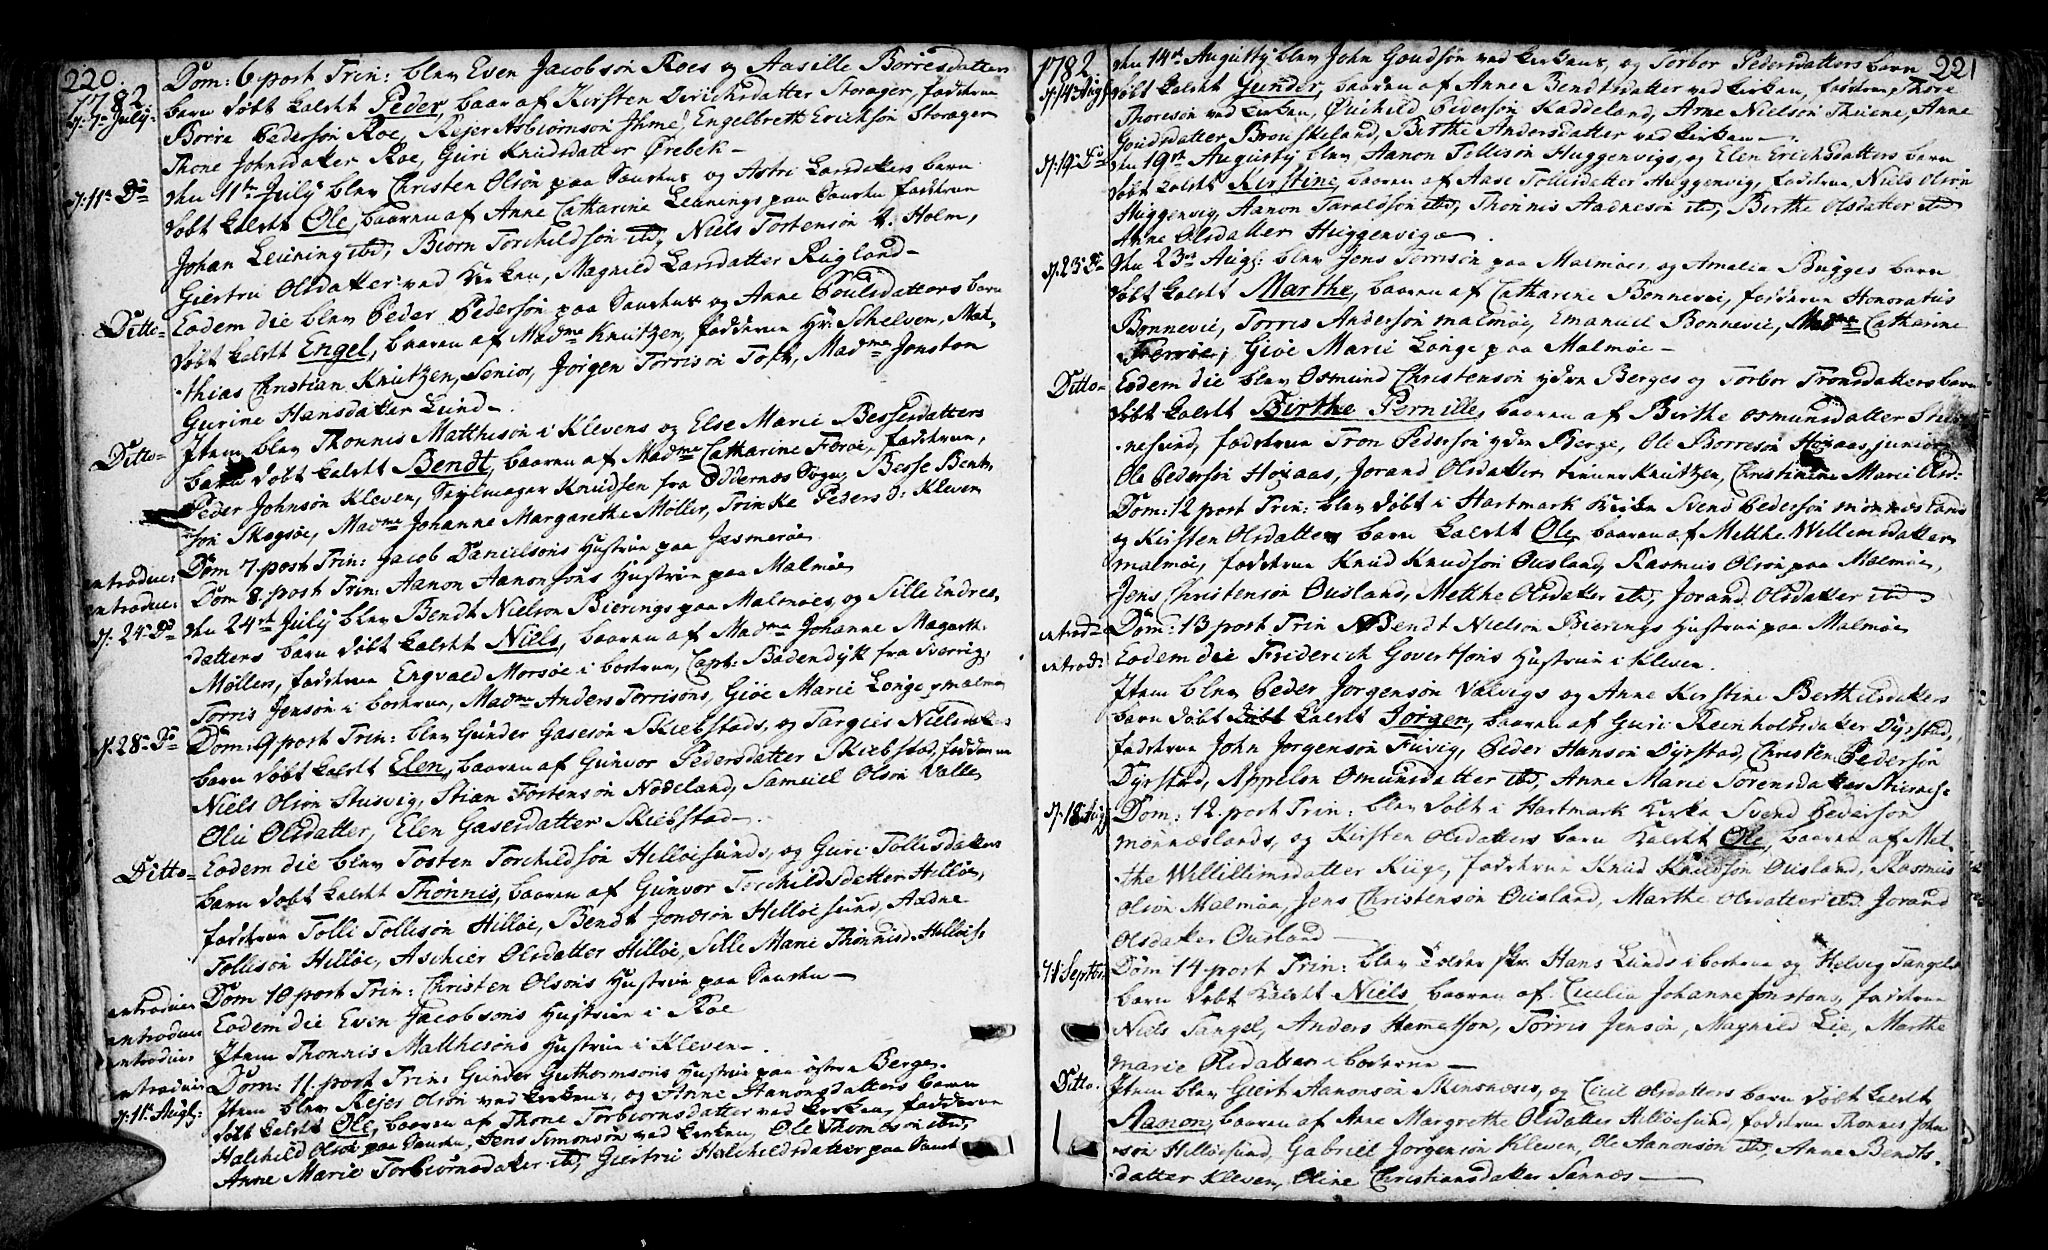 220.
1782
d: 7de July.
Dom: 6 post Trin: blev Even Jacobsøn Roes og Aasille Børresdatters
barn døbt kaldt Peder, baaren af Kirsten Dirichsdatter Storager, fadderne
Børre Pedersøn Roe, Rejer Asbiørnsøn Ihme, Engelbreth Erichsøn Storager
Thone Johnsdatter Roe, Guri Knudsdatter Ørebek
d: 11te Do
den 11te July blev Christen Olsøn paa og Astri Larsdatters barn
døbt kaldt Ole, baaren af Anne Catharine Leunings paa fadderne
Johan Leuning ibd, Biørn Torchildsøn ibd, Niels Tostensøn v. Holm,
Giertru Olsdatter ved Kirken, Magnild Larsdatter Rugland
Ditto
Eodem die blev Peder Pedersøn paa og Anne Poulsdatters barn
døbt kaldt Engel, baaren af Madme Knutzen, fadderne Hr: Schelven, Mat-
thias Christian Knutzen, Senior, Jørgen Torrisøn Toft, Madme Jonston
Gurine Hansdatter Lund
Ditto
Item blev Thonnis Matthisøn i Klevens og Else Marie Bessesdatters
barn døbt kaldt Bendt, baaren af Madme Catharine Færøe, fadderne,
Peder Johnsøn Kleven, Seylmager Knudsen fra Oddernæs Sogn, Besse Bent-
søn Skogsøe, Madme Johanne Margarethe Møller, Trinke Peders d: Kleven
introduc:
Dom 7 post Trin: Jacob Danielsøns Hustrue paa Jasmerøe
introduc:
Dom 8 post Trin: Aanon Aanonsøns Hustrue paa Malmøe
d: 24de Do
den 24de July blev Bendt Nielsøn Bierings paa Malmøes, og Sille Endres-
datters barn døbt kaldt Niels, baaren af Madme Johanne Magreth-
Møllers, fadderne Engvald Morsøe i boerne, Capt: Badendyk fra Sverrig,
Torris Jensøn i boerne, Madme Anders Torrisøns, Giøe Marie Longe p Malmøe
d: 28de Do
Dom: 9 post Trin: blev Gunder Gasesøn Skiebstads, og Targies Nielsdatters
barn døbt kaldt Elen, baaren af Gunvor Pedersdatter Skiebstad, fadderne
Niels Olsøn Stusvig, Stian Tostensøn Nodeland, Samuel Olsøn Valle
Olie Olsdatter, Elen Gasesdatter Skiebstad
Ditto
Eodem die blev Tosten Torchildsøn Hilløesunds, og Guri Tollisdatters
barn døbt kaldt Thonnis, baaren af Gunvor Torchildsdatter Hilløe,
fadderne Tolli Tollisøn Hilløe, Bendt Jonasøn Hilløesund, Aadne
Tollisøn Hilløe, Aschier Olsdatter Hilløe, Sille Marie Thonnisd. Hilløes:
introduc:
Dom 10 post Trin: Christen Olsøns Hustrue paa
introduc:
Eodem die Even Jacobsøns Hustrue i Roe
introduc:
Item Thonnis Matthesøns Hustrue i Kleven
introduc:
Dom: 11 post Trin: Gunder Guthormsøns Hustrue paa østre Berge.
d: 11te Aug:
Item blev Rejer Olsøn ved Kirkens, og Anne Aanonsdatters barn
døbt kaldt Ole, baaren af Thone Torbiørnsdatter ved Kirken, fadderne
Halchild Olsøn paa, Jens Simonsøn ved Kirken, Ole Thomesøn ibd,
Anne Marie Torbiørnsdatter ibd, Giertrue Halchildsdatter paa
1782
221
d: 14de Aug:
den 14de Augusty blev John Goudsøn ved Kirkens, og Torbor Pedersdatters barn
døbt kaldt Gunder, baaren af Anne Bendtsdatter ved Kirken, fadderne, Thore
Thoresøn ved Kirken, Øuchild Pedersøn Kaddeland, Arne Nielsøn Thuene, Anne
Goudsdatter Brouskeland, Birthe Andersdatter ved Kirken
d: 19de Do
den 19de Augusty blev Aanon Tollisøn Huggenvigs, og Elen Erichsdatters barn
døbt kaldt Kirstine, baaren af Aase Tollisdatter Huggenvig, fadderne, Niels Olsøn
Huggenvig, Aanon Taraldsøn ibd, Thonnis Aadnesøn ibd, Birthe Olsdatter ibd
Anne Olsdatter Huggenvig
d: 23de Do
den 23de Aug: blev Jens Torrisøn paa Malmøes, og Amalia Bugges barn
døbt kaldt Marthe, baaren af Catharine Bonnevie, fadderne Honoratus
Bonnevie, Torris Andersøn malmøe, Emanuel Bonnevie, Madme Catharine
Færøe, Giøe Marie Longe paa Malmøe
Ditto
Eodem die blev Osmund Christensøn ydre Berges og Torbor Tronsdatters barn
døbt kaldt Birthe Pernille, baaren af Birthe Osmunsdatter
nesund, fadderne Tron Pedersøn ydre Berge, Ole Børresøn Høyaas, junior
Ole Pedersøn Høyaas, Jorand Olsdatter Knutzen, Christinine Marie Olsd:
Dom: 12 post Trin: blev døbt i Hartmark Kirke Svend Pedersøn mønnesland
og Kirsten Olsdatters barn kaldt Ole, baaren af Metthe Willemsdatter
malmøe, fadderne Knud Knudsøn Ousland, Rasmus Olsøn paa Malmøe,
Jens Christensøn Ousland, Metthe Olsdatter ibd, Jorand Olsdatter ibd
introd:
Dom: 13 post Trin Bendt Nielsøn Bierings Hustrue paa Malmøe
introd:
Eodem die Friderich Govertsøns Hustrue i Kleven.
Item blev Peder Jørgensøn Valvigs og Anne Kirstine Berthelsdatters
barn døbt døbt kaldt Jørgen, baaren af Guri Reinholtsdatter Dyrstad,
fadderne John Jørgensøn Fuvig, Peder Hansøn Dyrstad, Christen Pedersøn
Dyrstad, Appelon Omundsdatter ibd, Anne Marie Sørensdatter Stiernes:
d: 18 Aug:
Dom: 12 post Trin: blev døbt i Hartmark Kirke Svend Pedersøn
mønnæslands, og Kirsten Olsdatters barn kaldt Ole, baaren af Met-
the Willumsdatter Kiige, fadderne Knud Knudsøn Ousland, Rasmus
Olsøn Malmøe, Jens Christensøn Ousland, Marthe Olsdatter ibd Jorand
Olsdatter Ousland
d: 1 Septbr:
Dom 14 post Trin: blev Tolder skr: Hans Lunds i boerne og Helvig Tangels
barn døbt kaldt Niels, baaren af Cicilia Johanne Jonstons, fadderne
Niels Tangel, Anders Hammetsøn, Torris Jensøn, Magnild Lie, Marthe
marie Olsdatter i boerne
Ditto.
Item blev Giert Aanonsøn Skinsnæses, og Cicil Olsdatters barn døbt kaldt
Aanon, baaren af Anne Margrethe Olsdatter Hilløesund, fadderne Thonnis John-
søn Hilløesund, Gabriel Jørgensøn Kleven, Ole Aanonsøn ibd, Anne Bendts-
datter Kleven, Oline Christiansdatter Sannæs